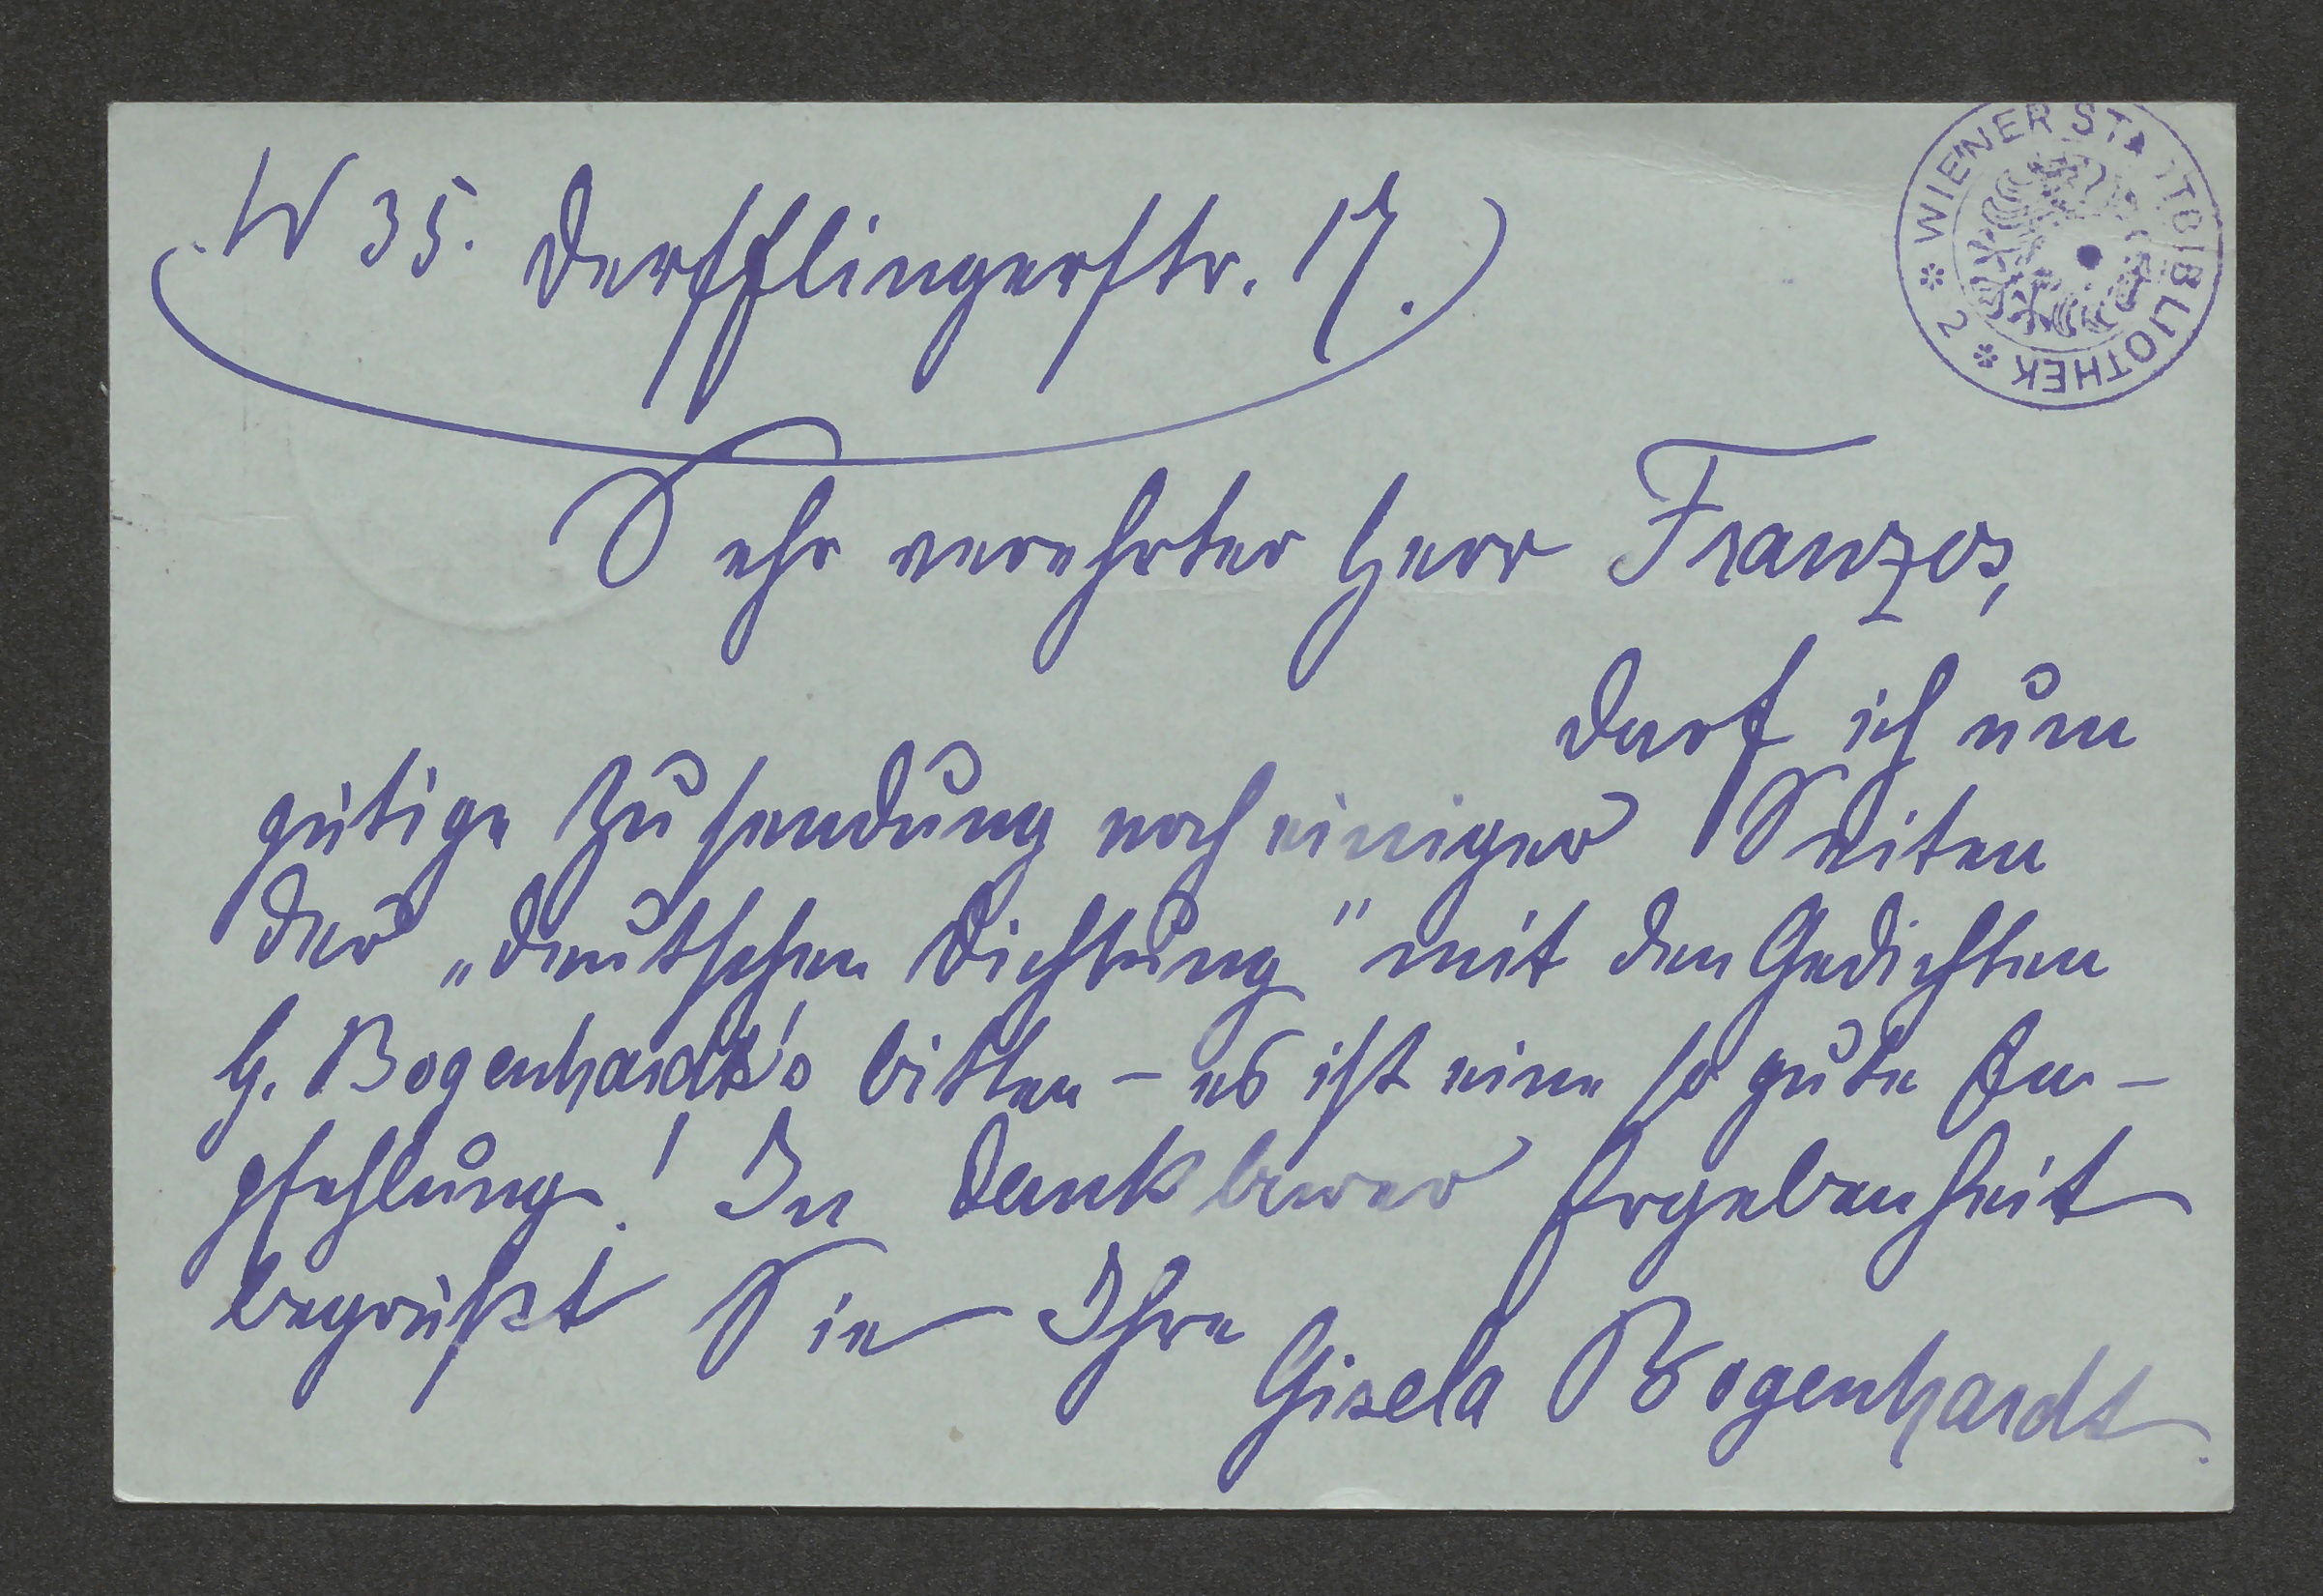 W 35. Derfflingerstr. 17.
* WIENER STADTBIBLIOTHEK * 2
Sehr verehrter Herr Franzos,
darf ich um
gütige Zusendung noch einiger Seiten
der „Deutschen Dichtung" mit den Gedichten
H. Bogenhardt's bitten – es ist eine so gute Em-
pfehlung! In dankbarer Ergebenheit
begrüßt Sie Ihre
Gisela Bogenhardt.